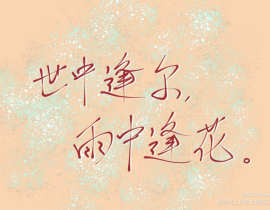 世中逢尔，
雨中逢花。